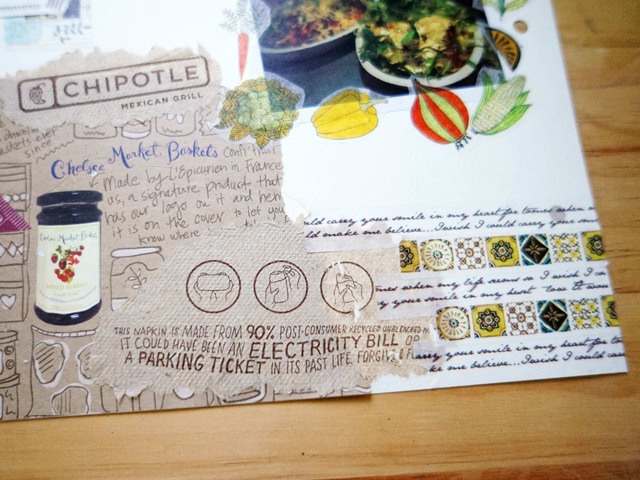 CHIPOTLE
MEXICAN GRILL
since
Chelsea Market Baskets
Made by L'Epicurien in France
us, a signature product that
has our logo on it and here
it is on the cover to let you
know where
Chelsea Market Baskets
THIS NAPKIN IS MADE FROM 90% POST-CONSUMER RECYCLED UNBLEACHED
IT COULD HAVE BEEN AN ELECTRICITY BILL OR
A PARKING TICKET IN ITS PAST LIFE. FORGIVE
could carry your smile in my heart for times when
make me believe...I wish I could carry your
times when my life seems so I wish I
your smile in my heart
I wish I could carry your smile in my heart for
me believe...I wish I could